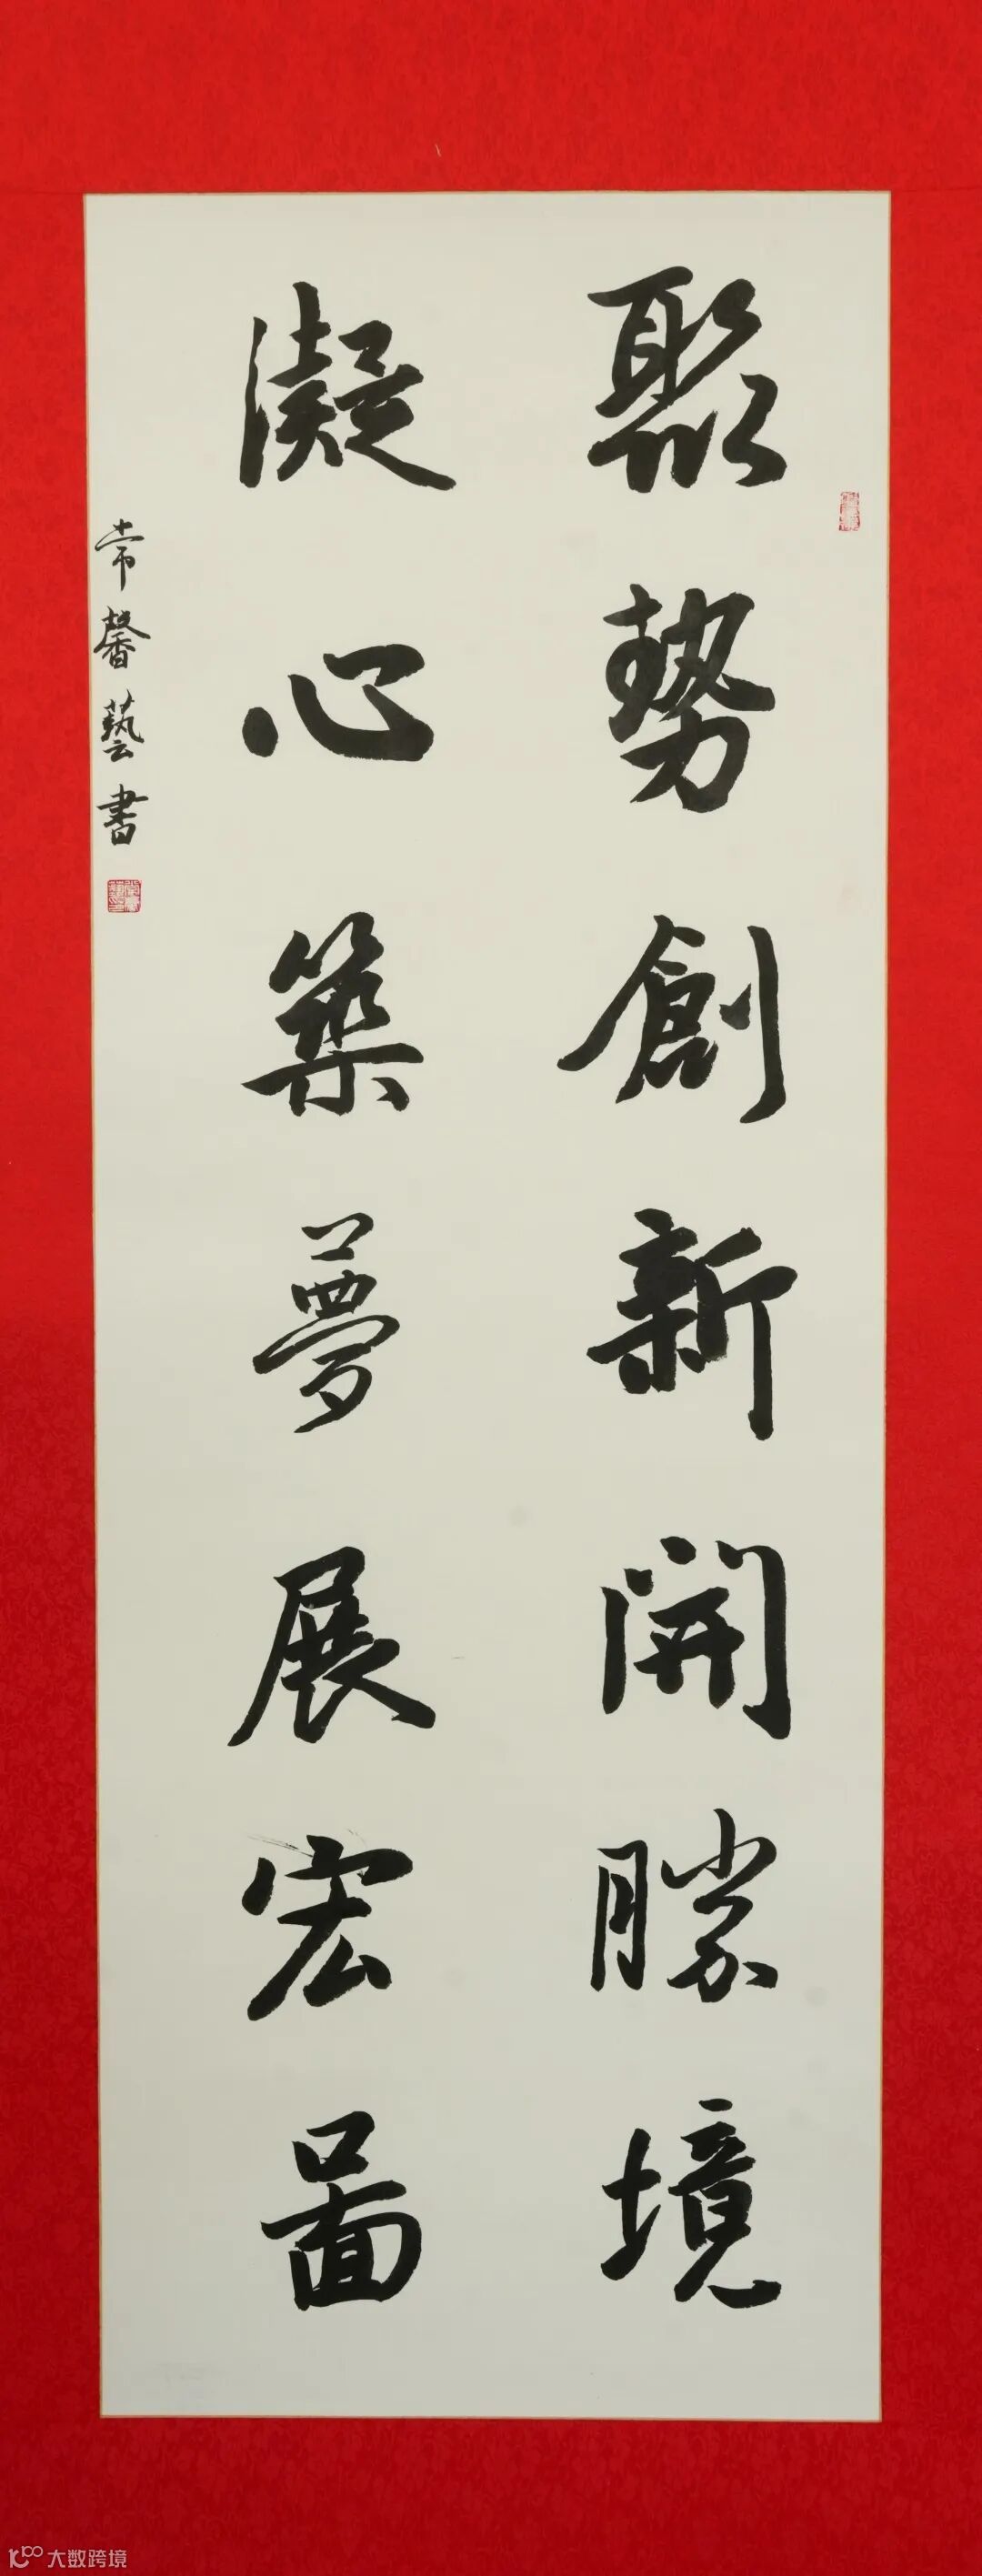 聚勢創新開勝境
凝心築夢展宏圖
常馨藝書
大数跨境